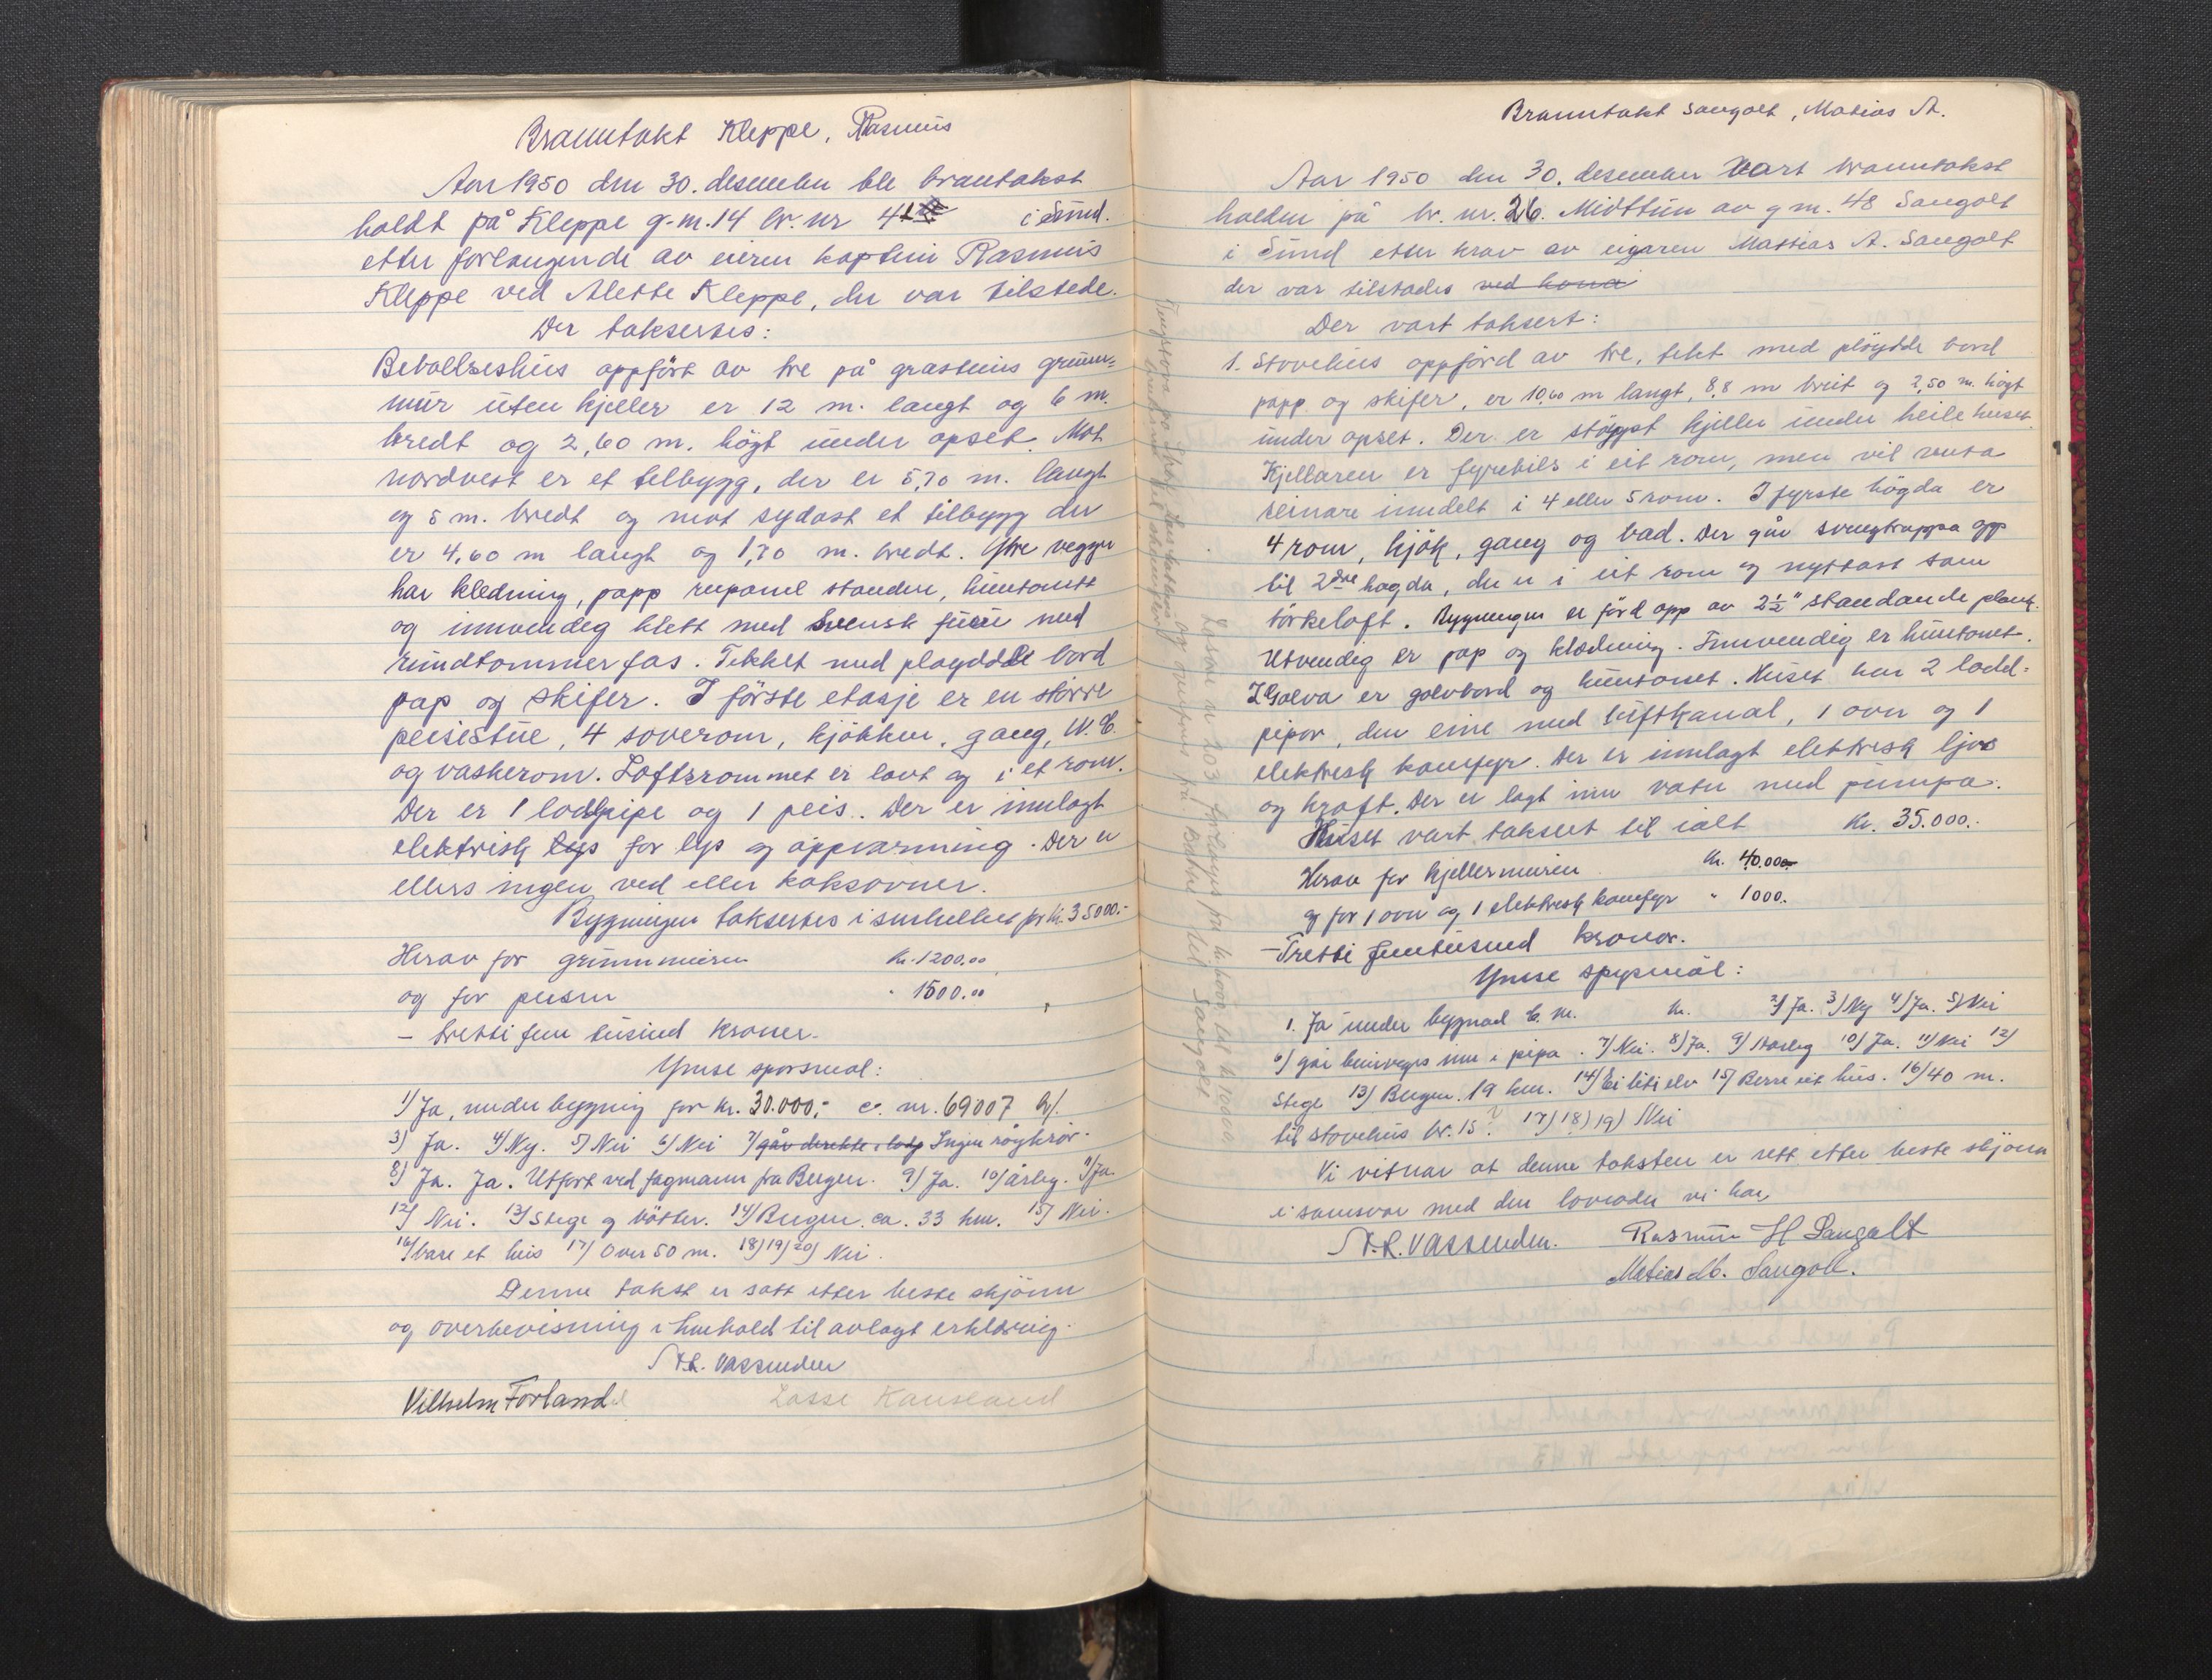 Branntakt Kleppe, Rasmus
Aar 1950 den 30. desember ble brantakst
holdt på Kleppe g.m. 14 br. nr 4 i Sund.
etter forlangende av eieren kaptein Rasmus
Kleppe ved Alette Kleppe, der var tilstede.
Der taksertes:
Beboelseshus oppført av tre på grasteins grunn=
mur uten kjeller er 12 m. langt og 6 m.
bredt og 2,60 m. högt under opset. Mot
nordvest er et telbygg, der er 5,70 m. langt
og 5 m. bredt og mot sydøst et tilbygg der
er 4,60 m langt og 1,70 m. bredt. Ytre vegger
har kledning, papp rupanel stender, huntonett
og innvendig kledt med svensk furu med
rundtømmerfas. Tekket med pløyddde bord
pap og skifer. I förste etasje er en större
peisestue, 4 soverom, kjökken, gang, W.C.
og vaskerom. Loftsrommet er lavt og i et rom.
Der er 1 loddpipe og 1 peis. Der er innlagt
elektrisk lys for lys og oppvarming. Der er
ellers ingen ved eller koksovner.
Bygningen taksertes i sin helhet for kr. 35000.-
Herav for grunnmuren kr. 1200.00
og for peisen " 1500.00
- tretti fem tusind kroner.
Ymse sporsmal:
1) Ja, under bygning for kr. 30.000,- c. nr. 69007 b/.
3) Ja. 4) Ny. 5) Nei 6) Nei 7) går direkte i lodp Ingen röykrör.
8) Ja. Ja. Utfort ved fagmann fra Bergen. 9) Ja. 10) årleg. 11) Ja.
12) Nei. 13) Stege og bötter. 14) Bergen. ca. 33 km. 15) Nei.
16) bare et hus 17) Over 50 m. 18) 19) 20) Nei.
Denne takst er satt etter beste skjönn
og overbevisning i henhold til avlagt erklæring.
N.R. Vassenden
Vilhelm Forland Lasse Kausland
Branntakst Sangolt, Matias A.
Aar 1950 den 30. desember vart branntakst
halden på br. nr. 26. Midttun av g m. 48 Sangolt
i Sund etter krav av eigaren Mattias A. Sangolt
der var tilstades ved kona
Der vart taksert:
1. Stovehus oppförd av tre, tekt med pløydde bord
papp og skifer, er 10,60 m langt, 8,8 m breit og 2,50 m. högt
under opset. Der er støypt kjeller under heile huset.
Kjellaren er fyrebils i eit rom, men vil verta
seinare inndelt i 4 eller 5 rom. I fyrste högda er
4 rom, kjök, gang og bad. Der går svingtrappa opp
til 2dre hogda, der er i eit rom og nyttast som
törkeloft. Bygningen er förd opp av 2½" standande plank.
Utvendig er pap og klædning. Innvendig er huntonet.
I Golva er golvbord og huntonet. Huset har 2 lodd=
pipor, den eine med luftkanal, 1 ovn og 1
elektrisk komfyr. Der er innlagt elektrisk ljos
og kraft. Der er lagt inn vatn med pumpa.
Huset vart taksert til ialt kr. 35.000.-
Herav for kjellermuren kr. 40.000
og for 1 ovn og 1 elektrisk komfyr " 1000.
- Tretti femtusund kronor.
Ymse spysmål:
1. Ja under bygnad C. nr. kr. 2) Ja. 3) Ny 4) Ja. 5) Nei
6) går beinveges inn i pipa. 7) Nei. 8) Ja. 9) Årleg 10) Ja. 11) Nei 12)
Stege 13) Bergen. 19 km. 14) Ei liti elv 15) Berre eit hus. 16) 40 m.
til stovehus br. 15? 17) 18) 19) Nei
Vi vitnar at denne taksten er sett etter beste skjönn
i samsvar med den lovnaden vi har
N.R. Vassenden. Rasmus H Sangolt
Matias M. Sangolt.